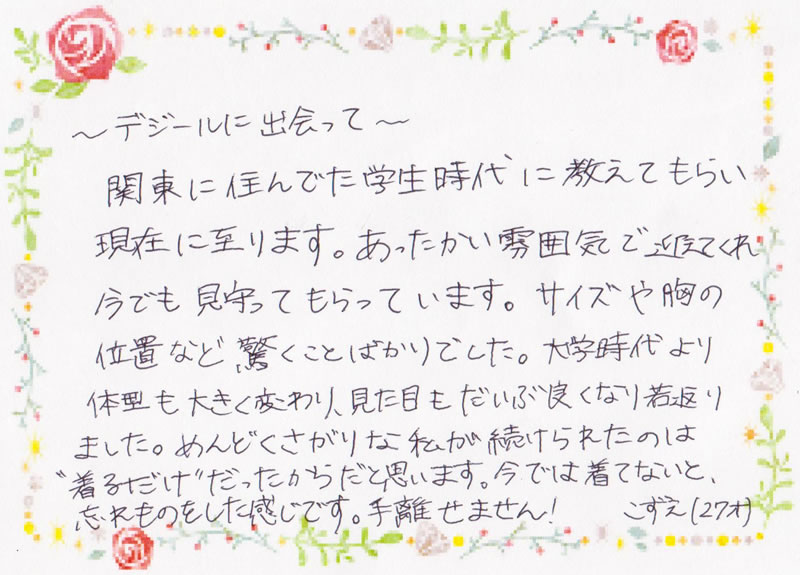 ～デジールに出会って～
関東に住んでた学生時代に教えてもらい
現在に至ります。あったかい雰囲気で迎えてくれ
今でも見守ってもらっています。サイズや胸の
位置など驚くことばかりでした。大学時代より
体型も大きく変わり、見た目もだいぶ良くなり若返り
ました。めんどくさがりな私が続けられたのは
"着るだけ"だったからだと思います。今では着てないと、
忘れものをした感じです。手離せません! こずえ(27才)